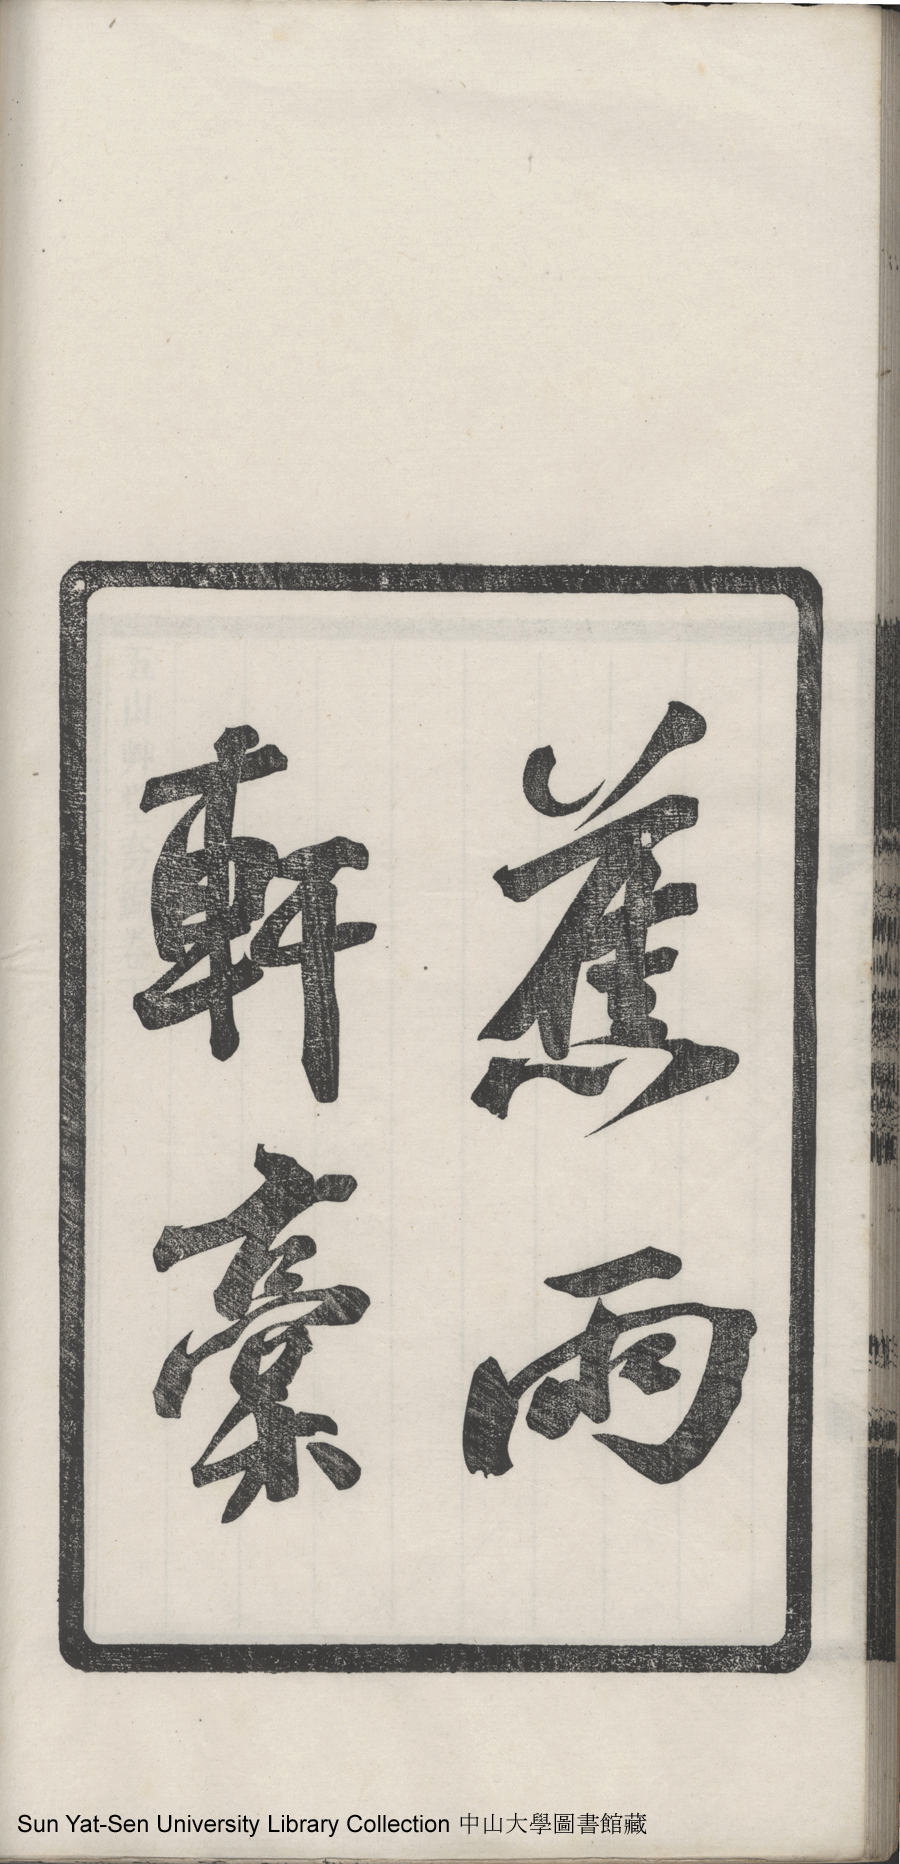 蕉雨
軒稾
Sun Yat-Sen University Library Collection 中山大學圖書館藏